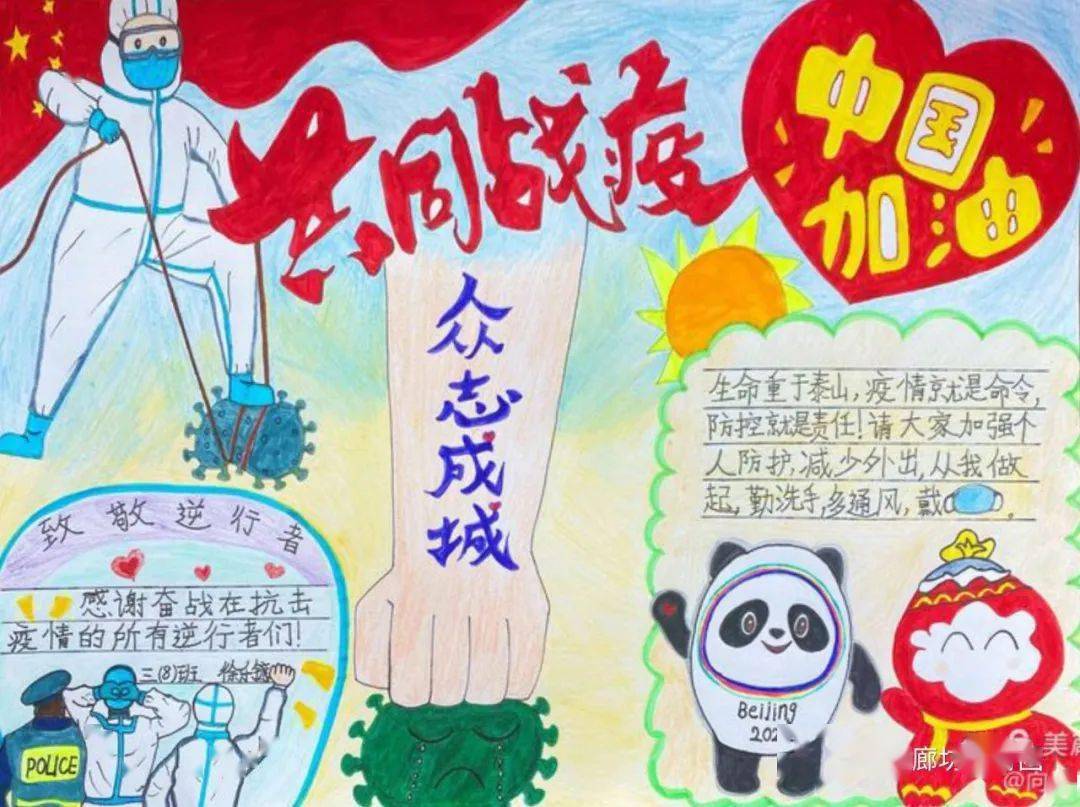 共同战疫
中国
加油
众志成城
生命重于泰山,疫情就是命令,
防控就是责任!请大家加强个
人防护,减少外出,从我做
起,勤洗手,多通风,戴 。
致敬逆行者
感谢奋战在抗击
疫情的所有逆行者们!
三(8)班 徐乐
POLICE
Beijing
202
美
@向